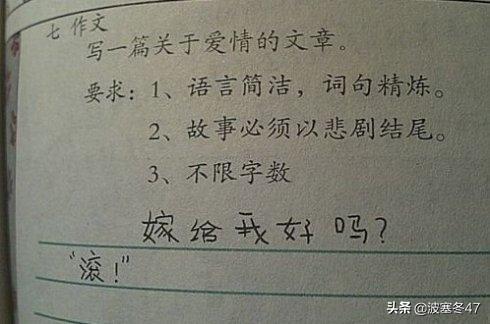 七 作文
写一篇关于爱情的文章。
要求：1、语言简洁，词句精炼。
2、故事必须以悲剧结尾。
3、不限字数
嫁给我好吗？
“滚！”
头条 @波塞冬47